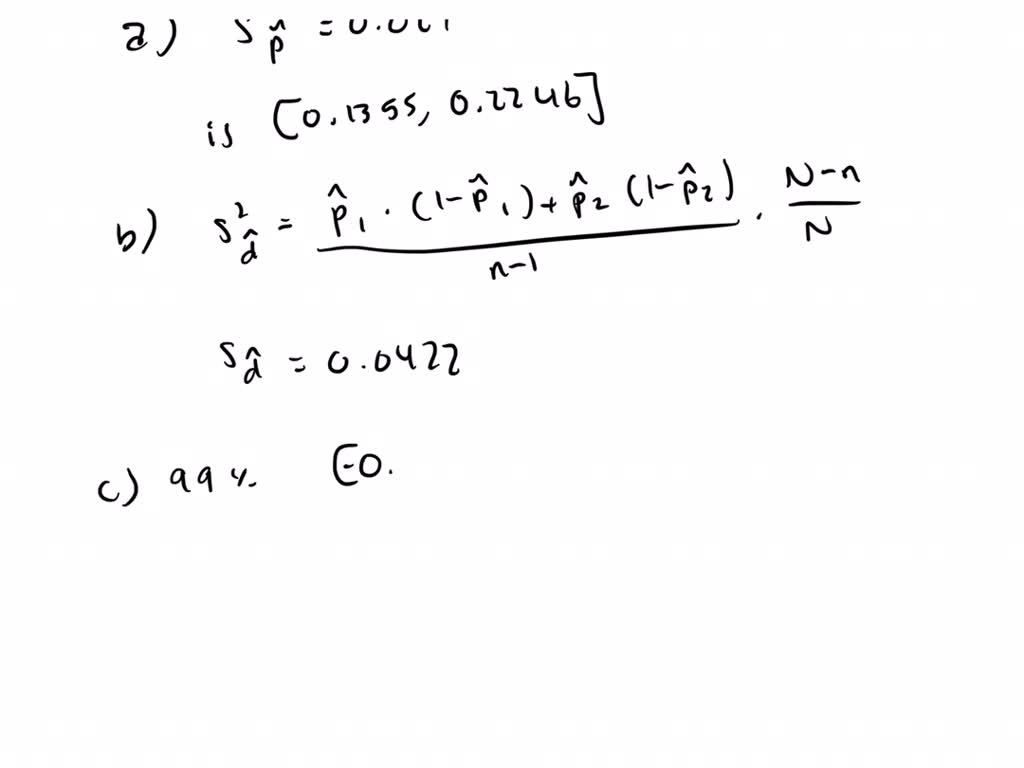 a) S p̂ =
is [0.1355, 0.2246]
b) s²_d̂ = p̂₁ · (1-p̂₁) + p̂₂ (1-p̂₂) / n-1 · N-n / N
s_d̂ = 0.0422
c) 99% [-0.